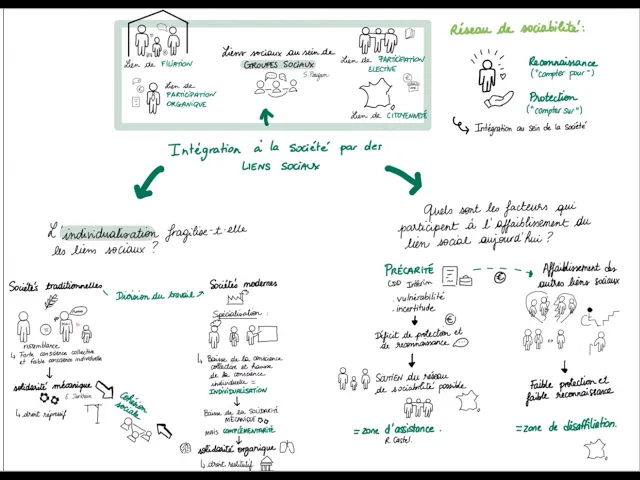 Lien de FILIATION
Lien de
PARTICIPATION
ORGANIQUE
Liens sociaux au sein de
GROUPES SOCIAUX
S. Paugam
Lien de PARTICIPATION
ÉLECTIVE
Lien de CITOYENNETÉ
Réseau de sociabilité :
Reconnaissance
("compter pour")
Protection
("compter sur")
Intégration au sein de la société
Intégration à la Société par des
LIENS SOCIAUX
L'individualisation fragilise-t-elle
les liens sociaux ?
Sociétés traditionnelles
Division du travail
Sociétés modernes
ressemblance
Forte conscience collective
et faible conscience individuelle
solidarité mécanique
E. Durkheim
droit répressif
Cohésion
sociale
Spécialisation
Baisse de la conscience
collective et hausse
de la conscience
individuelle =
INDIVIDUALISATION
Baisse de la SOLIDARITÉ
MÉCANIQUE
mais COMPLÉMENTARITÉ
solidarité organique
droit restitutif
Quels sont les facteurs qui
participent à l'affaiblissement du
lien social aujourd'hui ?
PRÉCARITÉ
CDD Intérim
. vulnérabilité
. incertitude
Déficit de protection et
de reconnaissance
SOUTIEN du réseau
de sociabilité possible
= zone d'assistance.
R. Castel
Affaiblissement des
autres liens sociaux
Faible protection et
faible reconnaissance
= zone de désaffiliation.